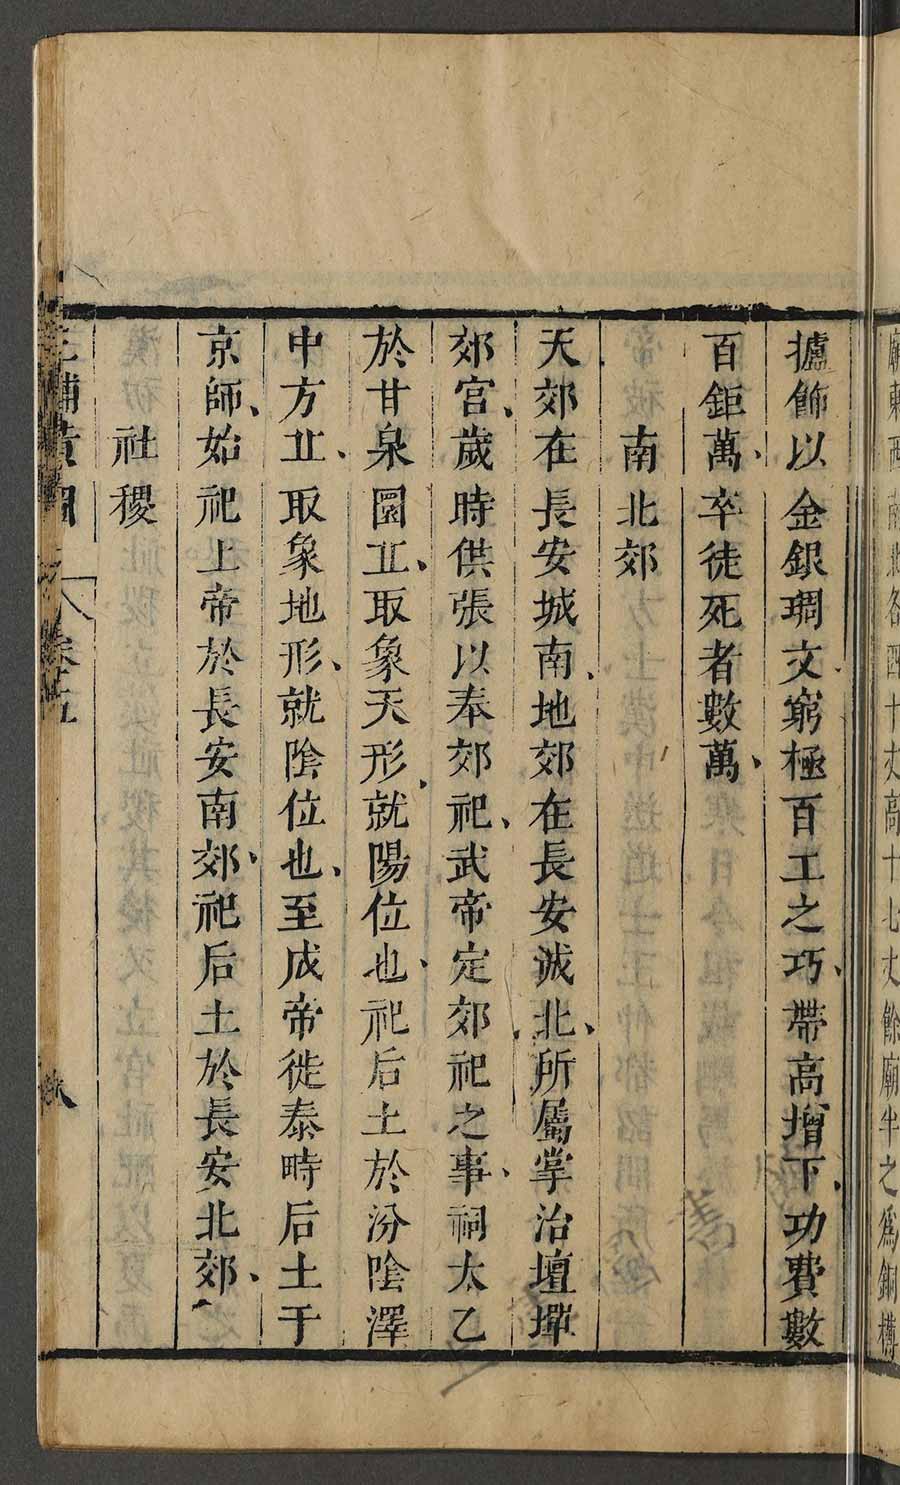 廟東西南北各四十丈高十七丈餘廟半之爲銅樽
攎飾以金銀琱文窮極百工之巧、帶高增下、功費數
百鉅萬、卒徒死者數萬、
南北郊
天郊在長安城南、地郊在長安城北、所屬掌治壇墠
郊宮、歲時供張以奉郊祀、武帝定郊祀之事、祠太乙
於甘泉圜丠、取象天形、就陽位也、祀后土於汾陰澤
中方丠、取象地形、就陰位也、至成帝徙泰畤后土于
京師、始祀上帝於長安南郊、祀后土於長安北郊、
社稷
三輔黃圖 卷五